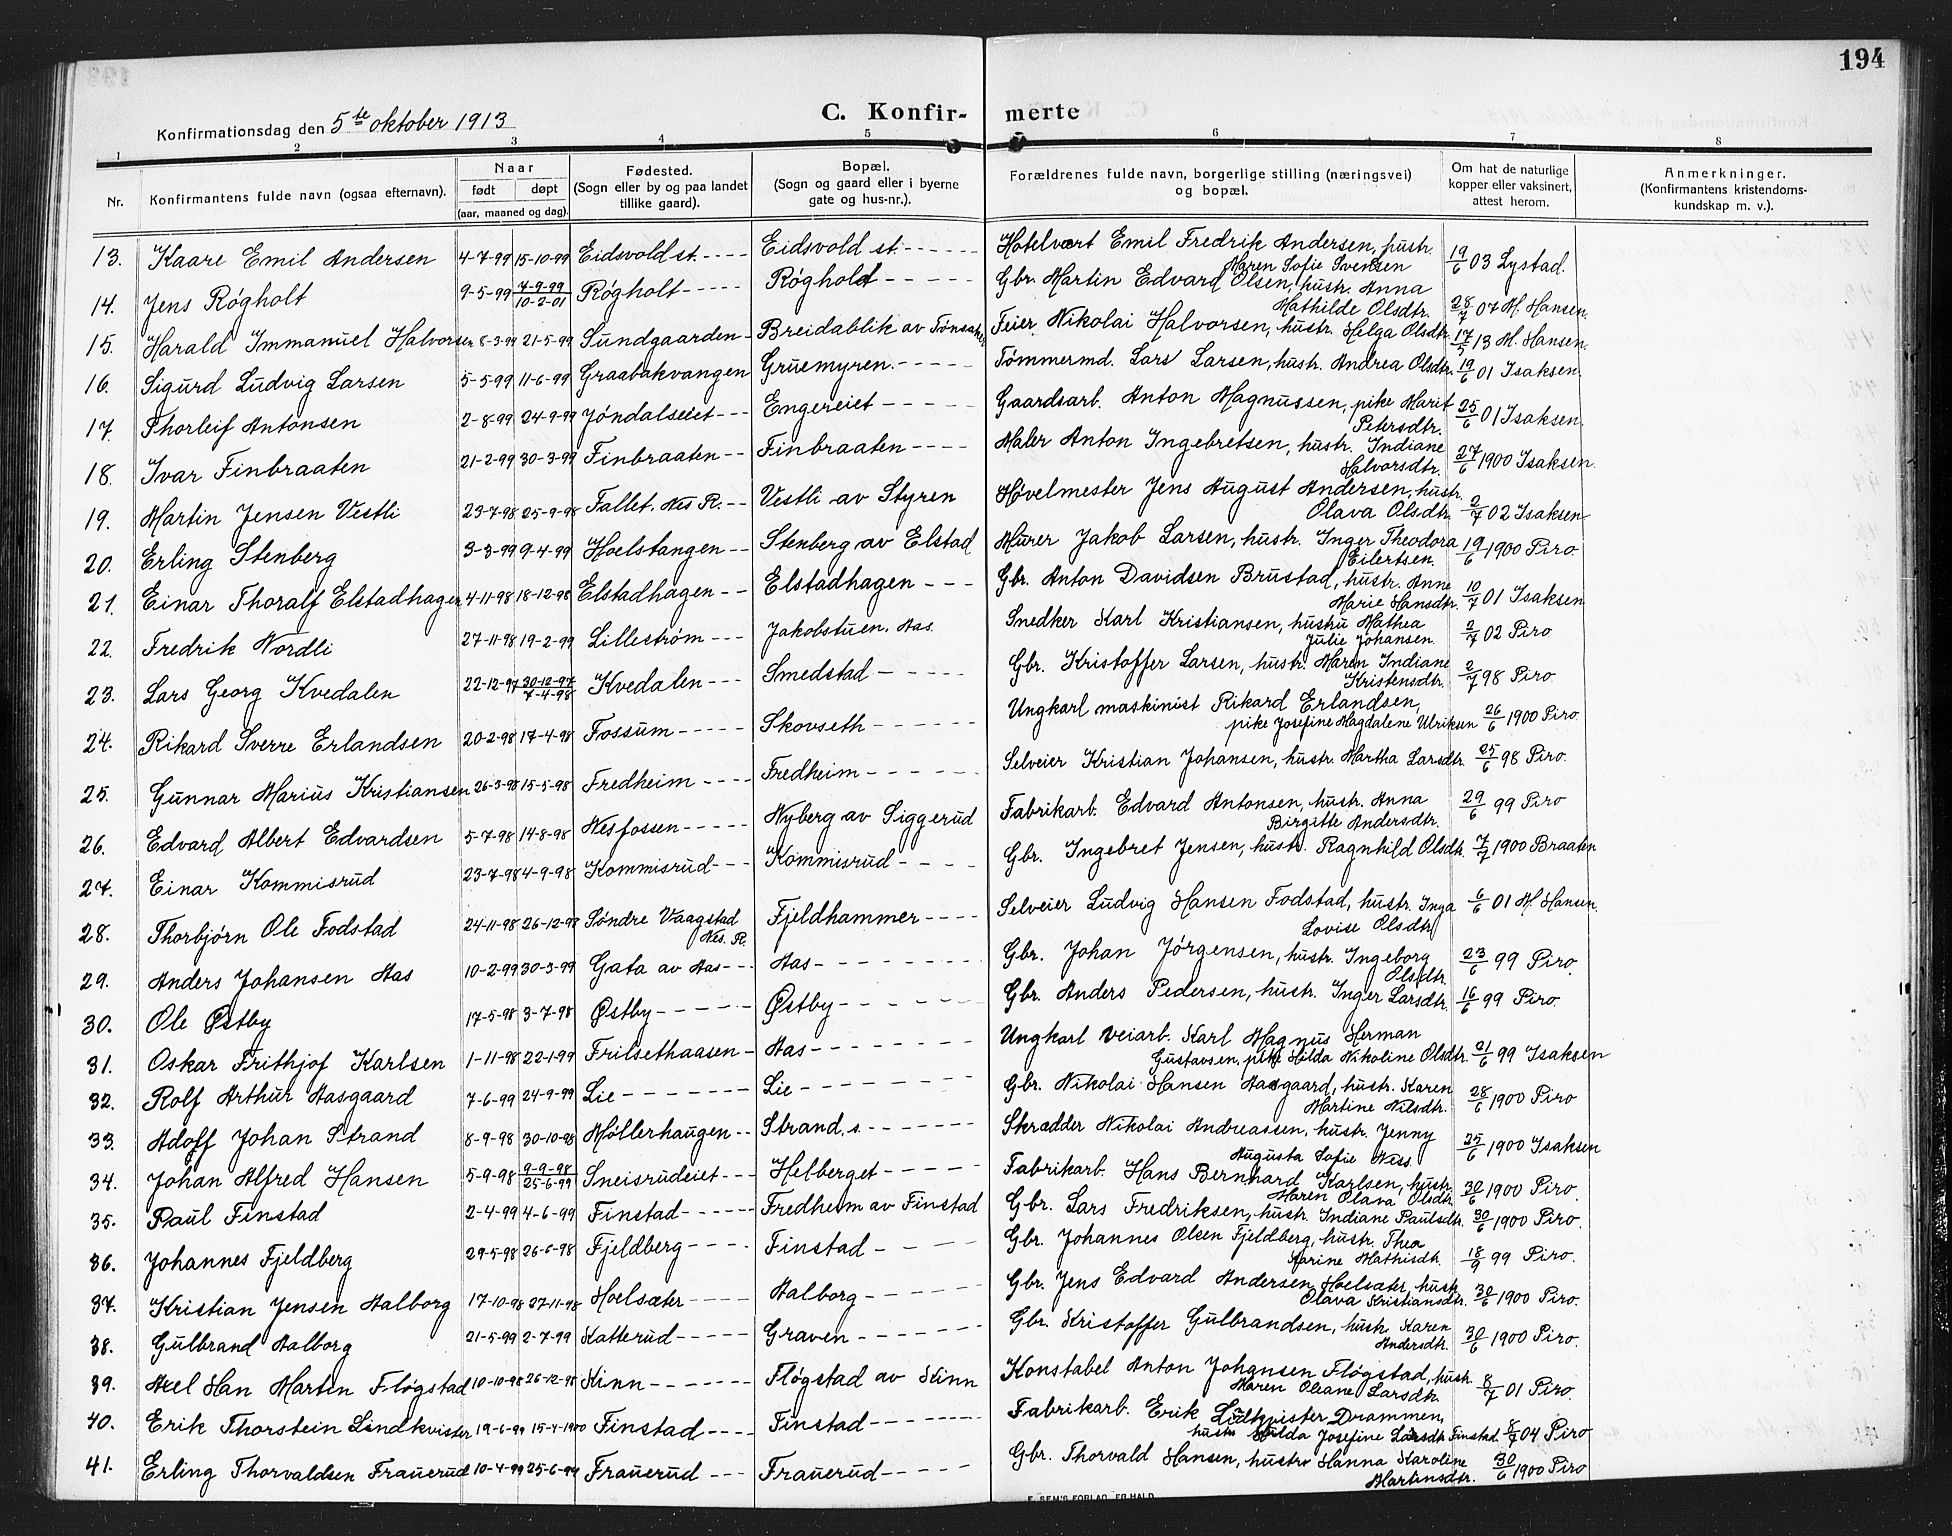 194
Konfirmationsdag den 5te oktober 1913
C. Konfir- merte
1 2 3 4 5 6 7 8
Nr.
Konfirmantens fulde navn (ogsaa efternavn).
Naar
født døpt
(aar, maaned og dag).
Fødested.
(Sogn eller by og paa landet
tillike gaard).
Bopæl.
(Sogn og gaard eller i byerne
gate og hus-nr.).
Forældrenes fulde navn, borgerlige stilling (næringsvei)
og bopæl.
Om hat de naturlige
kopper eller vaksinert,
attest herom.
Anmerkninger.
(Konfirmantens kristendoms-
kundskap m. v.).
13. Kaare Emil Andersen 4-7-99 15-10-99 Eidsvold st. Eidsvold st. Hotelvært Emil Fredrik Andersen, hustr. 19/6 03 Lystad.
Maren Sofie Svensen
14. Jens Røgholt 9-5-99 7-9-99 10-2-01 Røgholt Røghold Gbr. Martin Edvard Olsen, hustr. Anna
Mathilde Olsdtr. 28/7 07 M. Hansen.
15. Harald Immanuel Halvorsen 8-3-99 21-5-99 Sundgaarden Breidablik av Tønsaker Feier Nikolai Halvorsen, hustr. Helga Olsdtr. 17/5 13 M. Hansen.
16. Sigurd Ludvig Larsen 5-5-99 11-6-99 Graabakvangen Gruemyren. Tømmermd. Lars Larsen, hustr. Andrea Olsdtr. 19/6 01 Isaksen.
17. Thorleif Antonsen 2-8-99 24-9-99 Jøndalseiet Engereiet Gaardsarb. Anton Magnussen, pike Marit
Petersdtr. 25/6 01 Isaksen.
18. Ivar Finbraaten 21-2-99 30-3-99 Finbraaten Finbraaten Maler Anton Ingebretsen, hustr. Indiane
Halvorsdtr. 27/6 1900 Isaksen.
19. Martin Jensen Vestli 23-7-98 25-9-98 Fallet. Nes R. Vestli av Styren Høvelmester Jens August Andersen, hustr.
Olava Olsdtr. 2/7 02 Isaksen
20. Erling Stenberg 3-3-99 9-4-99 Hoelstangen Stenberg av Elstad Murer Jakob Larsen, hustr. Inger Theodora
Eilertsen. 19/6 1900 Piro
21. Einar Thoralf Elstadhagen 4-11-98 18-12-98 Elstadhagen Elstadhagen Gbr. Anton Davidsen Brustad, hustr. Anne
Marie Hansdtr. 10/7 01 Isaksen
22. Fredrik Nordli 27-11-98 19-2-99 Lillestrøm Jakobstuen. Aas. Snedker Karl Kristiansen, hustru Mathea
Julie Johansen. 2/7 02 Piro
23. Lars Georg Kvedalen 22-12-97 30-12-97 7-4-98 Kvedalen Smedstad Gbr. Kristoffer Larsen, hustr. Maren Indiane
Kristensdtr. 2/7 98 Piro
24. Rikard Sverre Erlandsen 20-2-98 17-4-98 Fossum Skovseth Ungkarl maskinist Rikard Erlandsen,
pike Josefine Magdalene Ulriksen 26/6 1900 Piro.
25. Gunnar Marius Kristiansen 26-3-98 15-5-98 Fredheim Fredheim Selveier Kristian Johansen, hustr. Martha Larsdtr. 25/6 98 Piro.
26. Edvard Albert Edvardsen 5-7-98 14-8-98 Nesfossen Nyberg av Siggerud Fabrikarb. Edvard Antonsen, hustr. Anna
Birgitte Andersdtr. 29/6 99 Piro
27. Einar Kommisrud 23-7-98 4-9-98 Kommisrud Kommisrud Gbr. Ingebret Jensen, hustr. Ragnhild Olsdtr. 7/7 1900 Braaten
28. Thorbjørn Ole Fodstad 24-11-98 26-12-98 Søndre Vaagstad
Nes. R. Fjeldhammer Selveier Ludvig Hansen Fodstad, hustr. Inga
Lovise Olsdtr 6/6 01 M. Hansen.
29. Anders Johansen Aas 10-2-99 30-3-99 Gata av Aas Aas Gbr. Johan Jørgensen, hustr. Ingeborg
Olsdtr. 23/6 99 Piro.
30. Ole Østby 17-5-98 3-7-98 Østby Østby Gbr. Anders Pedersen, hustr. Inger Larsdtr. 16/6 99 Piro.
31. Oskar Frithjof Karlsen 1-11-98 22-1-99 Frilsethaasen Aas Ungkarl veiarb. Karl Magnus Herman
Gustavsen, pike Hilda Nikoline Olsdtr. 21/6 99 Isaksen
32. Rolf Arthur Aasgaard 7-6-99 24-9-99 Lie Lie Gbr. Nikolai Hansen Aasgaard, hustr. Karen
Martine Nilsdtr. 28/6 1900 Piro
33. Adolf Johan Strand 8-9-98 30-10-98 Møllerhaugen Strand, s. Skrædder Nikolai Andreassen, hustr. Jenny
Augusta Sofie Ness. 25/6 1900 Isaksen
34. Johan Alfred Hansen 5-9-98 9-9-98 25-6-99 Sneisrudeiet Helberget Fabrikarb. Hans Bernhard Karlsen, hustr.
Maren Olava Olsdtr. 30/6 1900 Piro.
35. Paul Finstad 2-4-99 4-6-99 Finstad Fredheim av Finstad Gbr. Lars Fredriksen, hustr. Indiane Paulsdtr. 30/6 1900 Piro.
36. Johannes Fjeldberg 29-5-98 26-6-98 Fjeldberg Finstad Gbr. Johannes Olsen Fjeldberg, hustr. Thea
Karine Mathisdtr. 18/9 99 Piro.
37. Kristian Jensen Aalborg 17-10-98 27-11-98 Hoelsæter Aalborg Gbr. Jens Edvard Andersen Hoelsæter, hustr.
Olava Kristiansdtr. 30/6 1900 Piro.
38. Gulbrand Aalborg 21-5-99 2-7-99 Katterud Graven Gbr. Kristoffer Gulbrandsen, hustr. Karen
Andersdtr. 30/6 1900 Piro.
39. Axel Han Martin Fløgstad 10-10-98 26-12-98 Kinn Fløgstad av Kinn Konstabel Anton Johansen Fløgstad, hustr.
Maren Oliane Larsdtr. 8/7 01 Piro.
40. Erik Thorstein Lindkvister 19-6-99 15-4-1900 Finstad Finstad Fabrikarb. Erik Lindkvister Drammen,
hustr. Hulda Josefine Larsdtr. Finstad. 8/7 04 Piro
41. Erling Thorvaldsen Frauerud 10-4-99 25-6-99 Frauerud Frauerud Gbr. Thorvald Hansen, hustru Hanna Karoline
Martinsdtr. 30/6 1900 Piro
E. SEM'S FORLAG, FR.HALD